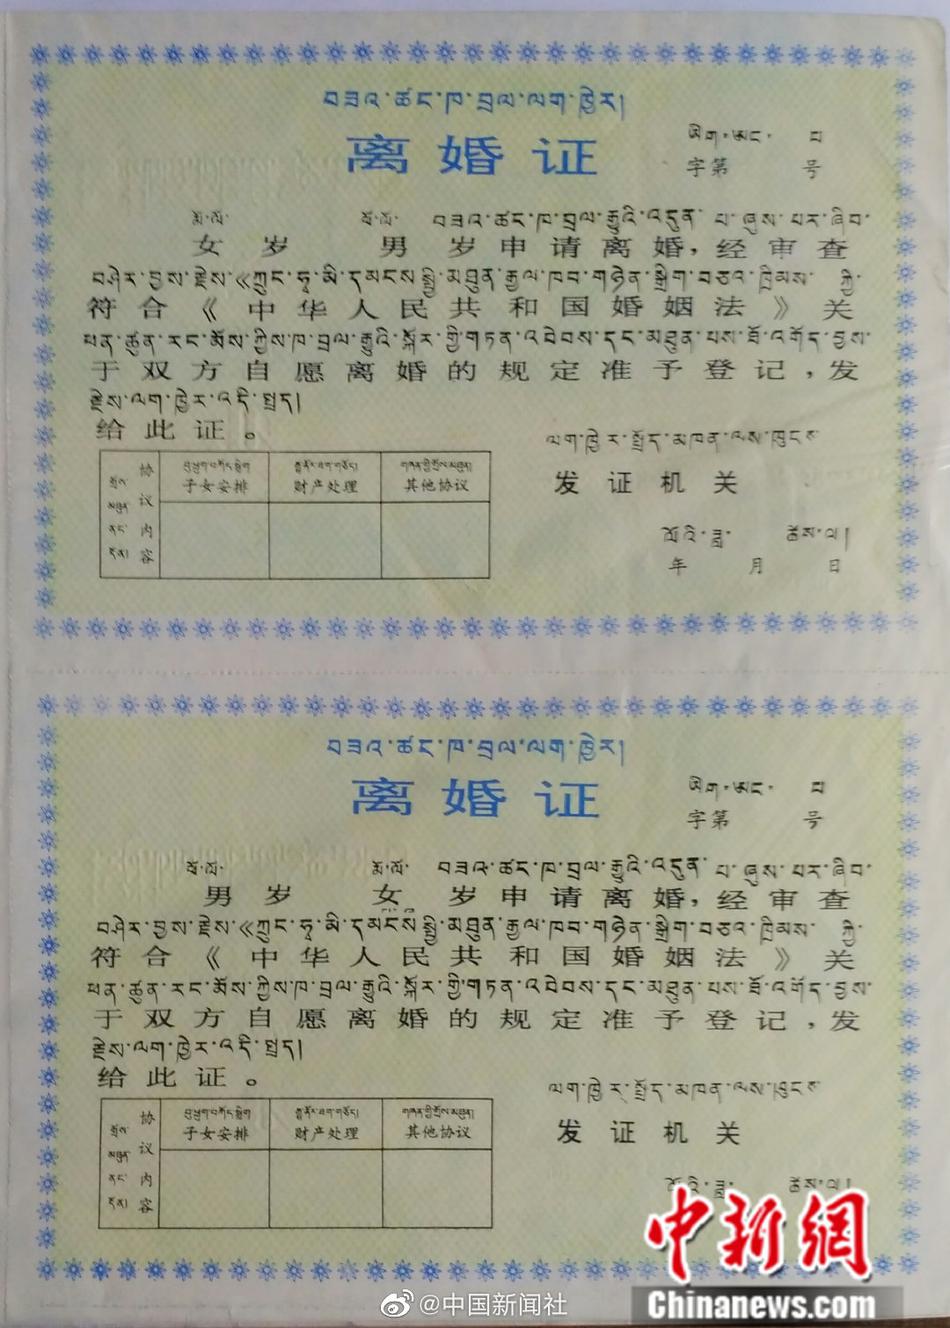 བཟའ་ཚང་ཁ་བྲལ་ལག་ཁྱེར།
离婚证
ཡིག་ཨང་ པ
字第 号
མོ་ལོ་ ཕོ་ལོ་ བཟའ་ཚང་ཁ་བྲལ་རྒྱུའི་འདུན་པ་ཞུས་པར་ཞིབ་
女 岁 男 岁申请离婚,经审查
བཤེར་བྱས་རྗེས་《ཀྲུང་ཧྭ་མི་དམངས་སྤྱི་མཐུན་རྒྱལ་ཁབ་གཉེན་སྒྲིག་བཅའ་ཁྲིམས་ ཀྱི་
符合《中华人民共和国婚姻法》关
ཕན་ཚུན་རང་མོས་ཀྱིས་ཁ་བྲལ་རྒྱུའི་སྐོར་གྱི་གཏན་འབེབས་དང་མཐུན་པས་ཐོ་འགོད་བྱས་
于双方自愿离婚的规定准予登记,发
རྗེས་ལག་ཁྱེར་འདི་སྤྲད།
给此证。
ལག་ཁྱེར་སྤྲོད་མཁན་ལས་ཁུངས་
发证机关
协议内容
གྲོས་མཐུན་ནང་དོན།
子女安排
财产处理
其他协议
ལོའི་ཟླ་ ཚེས་ལ།
年 月 日
བཟའ་ཚང་ཁ་བྲལ་ལག་ཁྱེར།
离婚证
ཡིག་ཨང་ པ
字第 号
ཕོ་ལོ་ མོ་ལོ་ བཟའ་ཚང་ཁ་བྲལ་རྒྱུའི་འདུན་པ་ཞུས་པར་ཞིབ་
男 岁 女 岁申请离婚,经审查
བཤེར་བྱས་རྗེས་《ཀྲུང་ཧྭ་མི་དམངས་སྤྱི་མཐུན་རྒྱལ་ཁབ་གཉེན་སྒྲིག་བཅའ་ཁྲིམས་ ཀྱི་
符合《中华人民共和国婚姻法》关
ཕན་ཚུན་རང་མོས་ཀྱིས་ཁ་བྲལ་རྒྱུའི་སྐོར་གྱི་གཏན་འབེབས་དང་མཐུན་པས་ཐོ་འགོད་བྱས་
于双方自愿离婚的规定准予登记,发
རྗེས་ལག་ཁྱེར་འདི་སྤྲད།
给此证。
ལག་ཁྱེར་སྤྲོད་མཁན་ལས་ཁུངས་
发证机关
协议内容
གྲོས་མཐུན་ནང་དོན།
子女安排
财产处理
其他协议
ལོའི་ཟླ་ ཚེས་ལ།
中新网
@中国新闻社
Chinanews.com